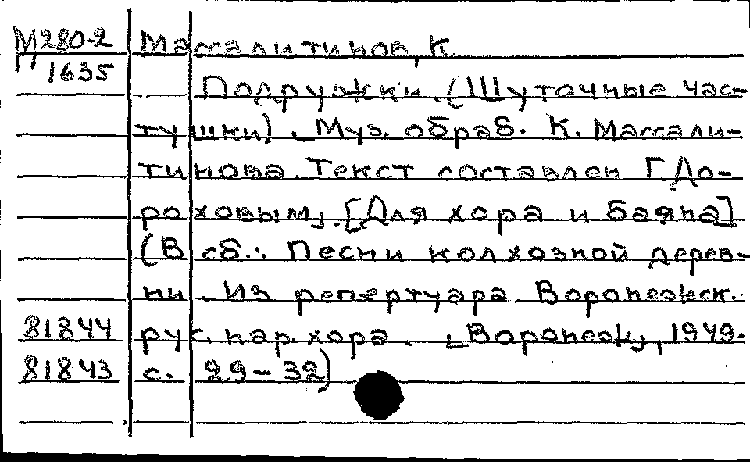 М280-2 Массалитинов, К.
1635
Подружки. (Шуточные час-
тушки). Муз. обраб. К. Массали-
тинова. Текст составлен Г. До-
роховым. [Для хора и баяна]
(В сб.: Песни колхозной дерев-
ни. Из репертуара Воронежск.
81844 рус. нар. хора. [Воронеж], 1949.
81843 с. 29-32)